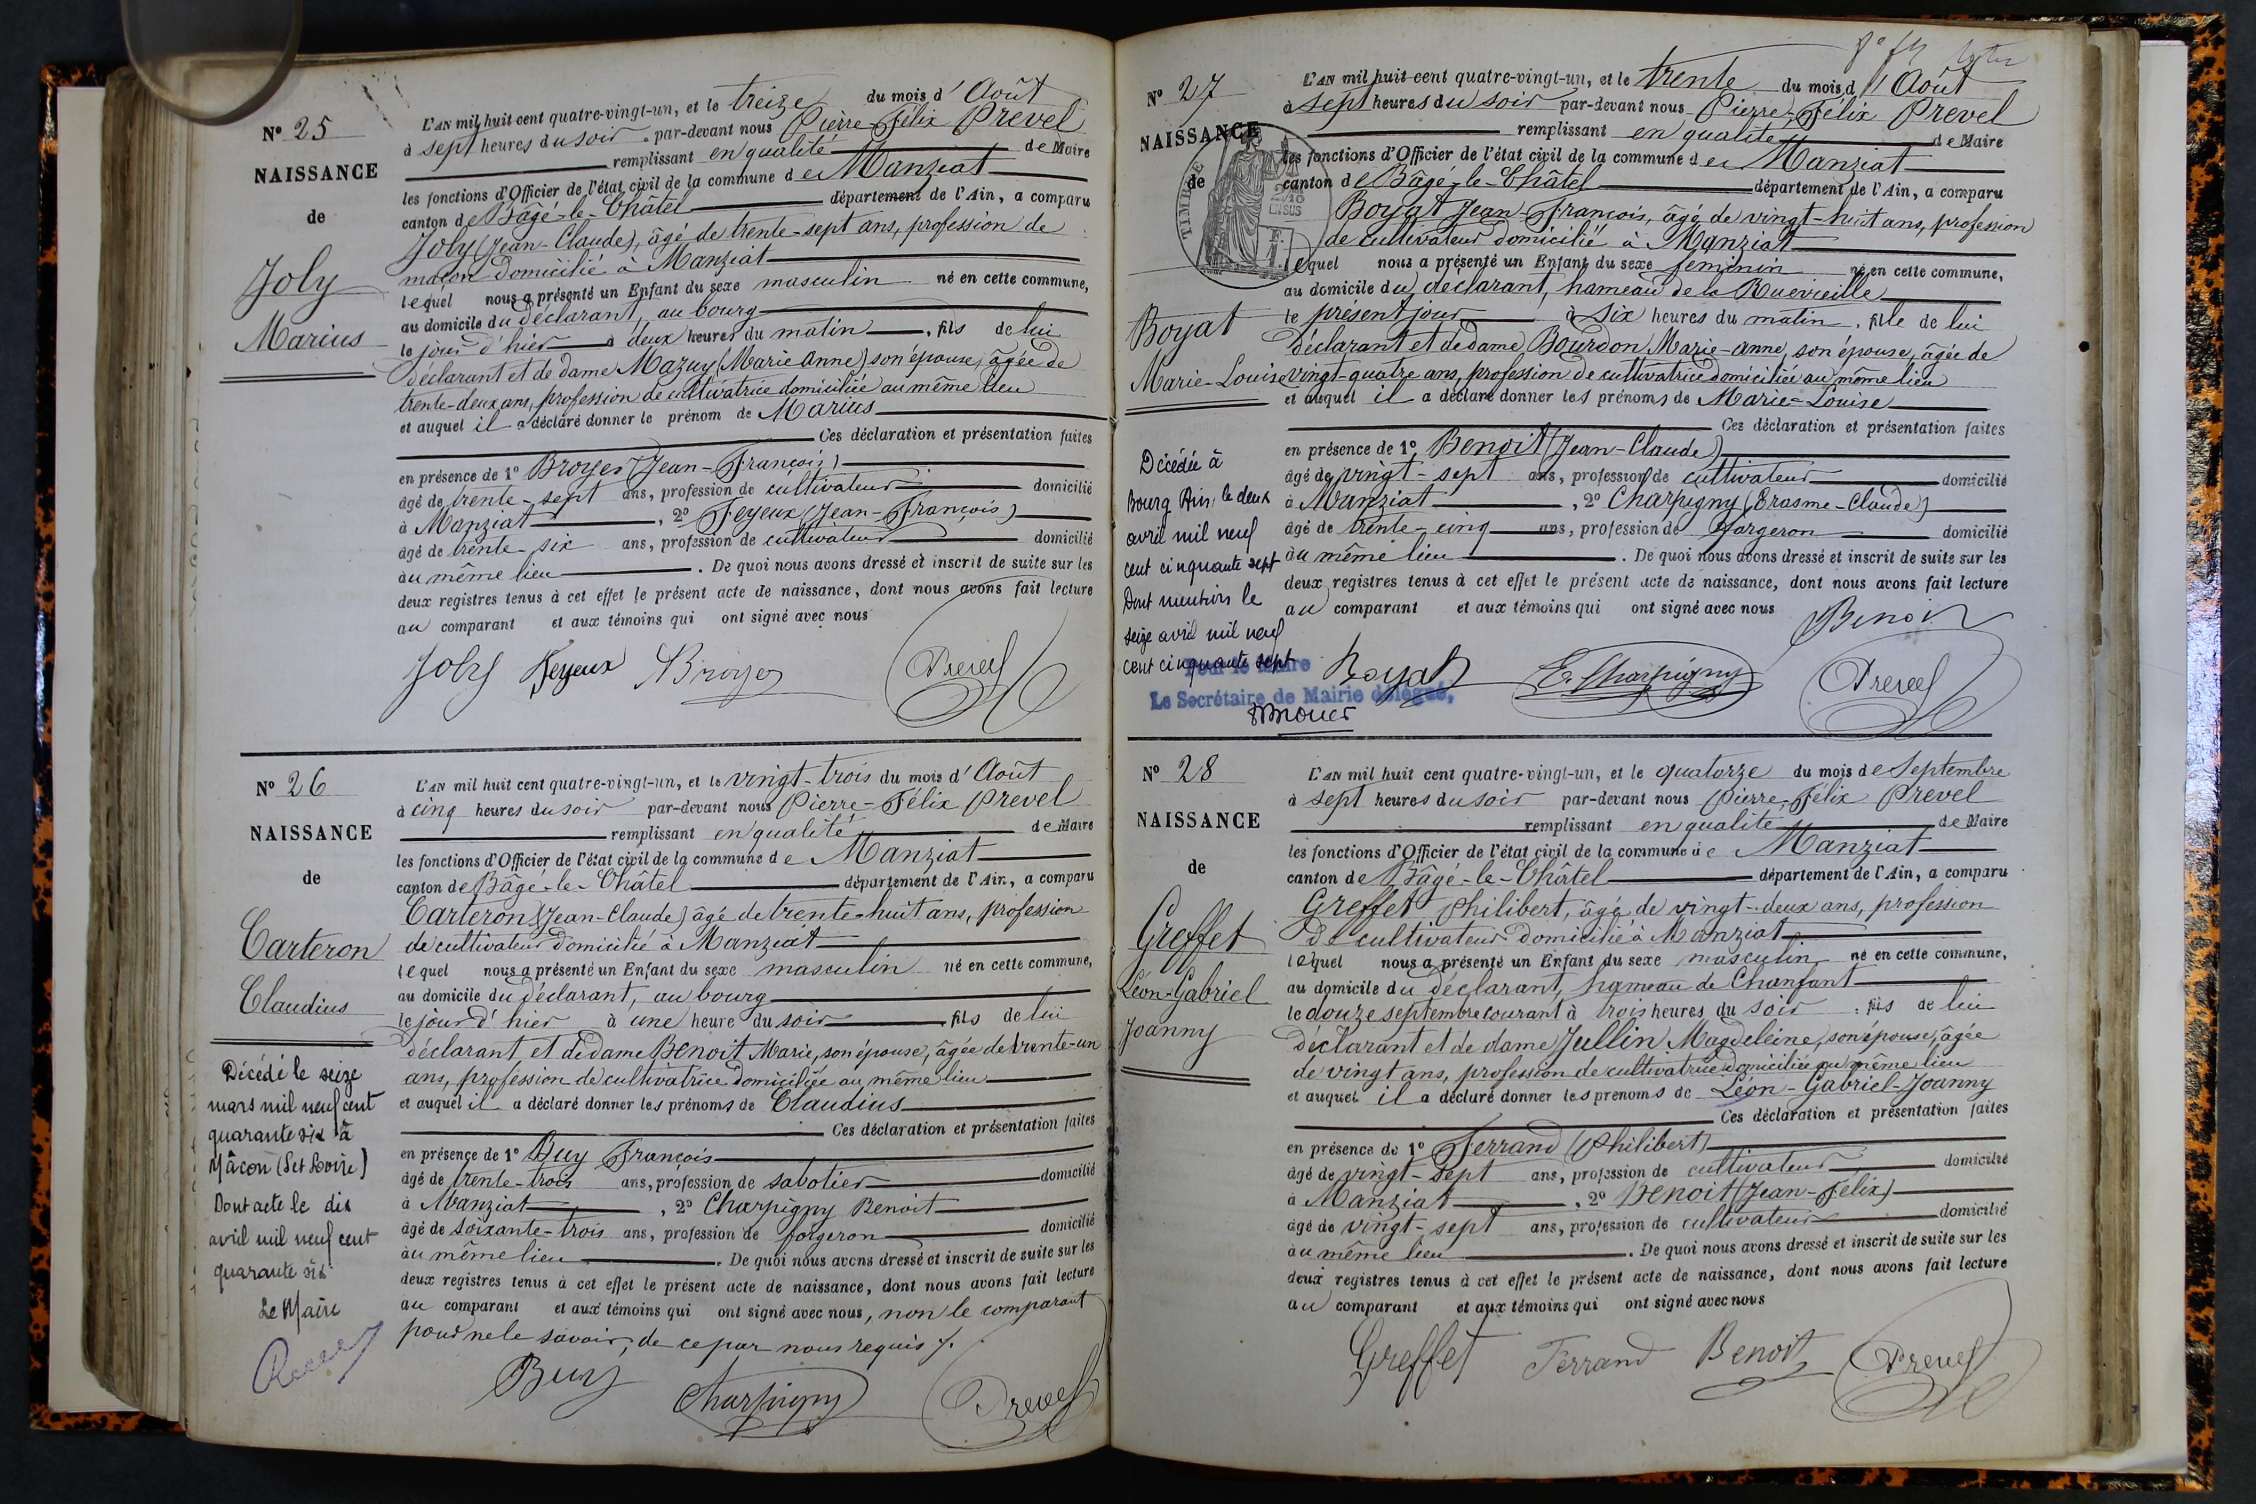 N° 25
NAISSANCE
de
Joly
Marius
L'AN mil huit cent quatre-vingt-un, et le treize du mois d'Août
à sept heures du soir par-devant nous Pierre-Félix Prevel
remplissant en qualité de Maire
les fonctions d'Officier de l'état civil de la commune de Manziat
canton de Bâgé-le-Châtel département de l'Ain, a comparu
Joly (Jean-Claude), âgé de trente-sept ans, profession de
maçon domicilié à Manziat
lequel nous a présenté un Enfant du sexe masculin né en cette commune,
au domicile du déclarant, au bourg
le jour d'hier à deux heures du matin, fils de lui
déclarant et de dame Mazuy (Marie Anne) son épouse, âgée de
trente-deux ans, profession de cultivatrice domiciliée au même lieu
et auquel il a déclaré donner le prénom de Marius
Ces déclaration et présentation faites
en présence de 1° Broyer (Jean-François)
âgé de trente-sept ans, profession de cultivateur domicilié
à Manziat, 2° Feyeux (Jean-François)
âgé de trente-six ans, profession de cultivateur domicilié
au même lieu. De quoi nous avons dressé et inscrit de suite sur les
deux registres tenus à cet effet le présent acte de naissance, dont nous avons fait lecture
au comparant et aux témoins qui ont signé avec nous
Joly Feyeux Broyer Prevel
N° 26
NAISSANCE
de
Carteron
Claudius
Décédé le seize
mars mil neuf cent
quarante six à
Mâcon (S et Loire)
Dont acte le dix
avril mil neuf cent
quarante six
Le Maire
L'AN mil huit cent quatre-vingt-un, et le vingt-trois du mois d'Août
à cinq heures du soir par-devant nous Pierre-Félix Prevel
remplissant en qualité de Maire
les fonctions d'Officier de l'état civil de la commune de Manziat
canton de Bâgé-le-Châtel département de l'Ain, a comparu
Carteron (Jean-Claude) âgé de trente-huit ans, profession
de cultivateur domicilié à Manziat
lequel nous a présenté un Enfant du sexe masculin né en cette commune,
au domicile du déclarant, au bourg
le jour d'hier à une heure du soir fils de lui
déclarant, et de dame Benoit Marie, son épouse, âgée de trente-un
ans, profession de cultivatrice domiciliée au même lieu
et auquel il a déclaré donner les prénoms de Claudius
Ces déclaration et présentation faites
en présence de 1° Buy François
âgé de trente-trois ans, profession de sabotier domicilié
à Manziat, 2° Charpigny Benoit
âgé de soixante-trois ans, profession de forgeron domicilié
au même lieu. De quoi nous avons dressé et inscrit de suite sur les
deux registres tenus à cet effet le présent acte de naissance, dont nous avons fait lecture
au comparant et aux témoins qui ont signé avec nous, non le comparant
pour ne le savoir, de ce par nous requis
Buy Charpigny Prevel
N° 27
NAISSANCE
de
TIMBRE
Boyat
Marie-Louise
Décédée à
Bourg Ain, le deux
avril mil neuf
cent cinquante sept
Dont mention le
seize avril mil neuf
cent cinquante sept
Pour le Maire
Le Secrétaire de Mairie délégué,
L'AN mil huit cent quatre-vingt-un, et le trente du mois d'Août
à sept heures du soir par-devant nous Pierre-Félix Prevel
remplissant en qualité de Maire
les fonctions d'Officier de l'état civil de la commune de Manziat
canton de Bâgé-le-Châtel département de l'Ain, a comparu
Boyat Jean-François, âgé de vingt-huit ans, profession
de cultivateur domicilié à Manziat
lequel nous a présenté un Enfant du sexe féminin né en cette commune,
au domicile du déclarant, hameau de la Ruevieille
le présent jour à six heures du matin, fille de lui
déclarant et de dame Bourdon Marie-Anne, son épouse, âgée de
vingt-quatre ans, profession de cultivatrice domiciliée au même lieu
et auquel il a déclaré donner les prénoms de Marie-Louise
Ces déclaration et présentation faites
en présence de 1° Benoit (Jean-Claude)
âgé de vingt-sept ans, profession de cultivateur domicilié
à Manziat, 2° Charpigny (Erasme-Claude)
âgé de trente-cinq ans, profession de forgeron domicilié
au même lieu. De quoi nous avons dressé et inscrit de suite sur les
deux registres tenus à cet effet le présent acte de naissance, dont nous avons fait lecture
au comparant et aux témoins qui ont signé avec nous
Benoit
Boyat E. Charpigny Prevel
N° 28
NAISSANCE
de
Greffet
Léon-Gabriel
Joanny
L'AN mil huit cent quatre-vingt-un, et le quatorze du mois de Septembre
à sept heures du soir par-devant nous Pierre-Félix Prevel
remplissant en qualité de Maire
les fonctions d'Officier de l'état civil de la commune de Manziat
canton de Bâgé-le-Châtel département de l'Ain, a comparu
Greffet Philibert, âgé de vingt-deux ans, profession
de cultivateur domicilié à Manziat
lequel nous a présenté un Enfant du sexe masculin né en cette commune,
au domicile du déclarant, hameau de Chanfant
le douze septembre courant à trois heures du soir, fils de lui
déclarant et de dame Jullin Magdeleine, son épouse, âgée
de vingt ans, profession de cultivatrice domiciliée au même lieu
et auquel il a déclaré donner les prénoms de Léon-Gabriel-Joanny
Ces déclaration et présentation faites
en présence de 1° Ferrand (Philibert)
âgé de vingt-sept ans, profession de cultivateur domicilié
à Manziat, 2° Benoit (Jean-Félix)
âgé de vingt-sept ans, profession de cultivateur domicilié
au même lieu. De quoi nous avons dressé et inscrit de suite sur les
deux registres tenus à cet effet le présent acte de naissance, dont nous avons fait lecture
au comparant et aux témoins qui ont signé avec nous
Greffet Ferrand Benoit Prevel